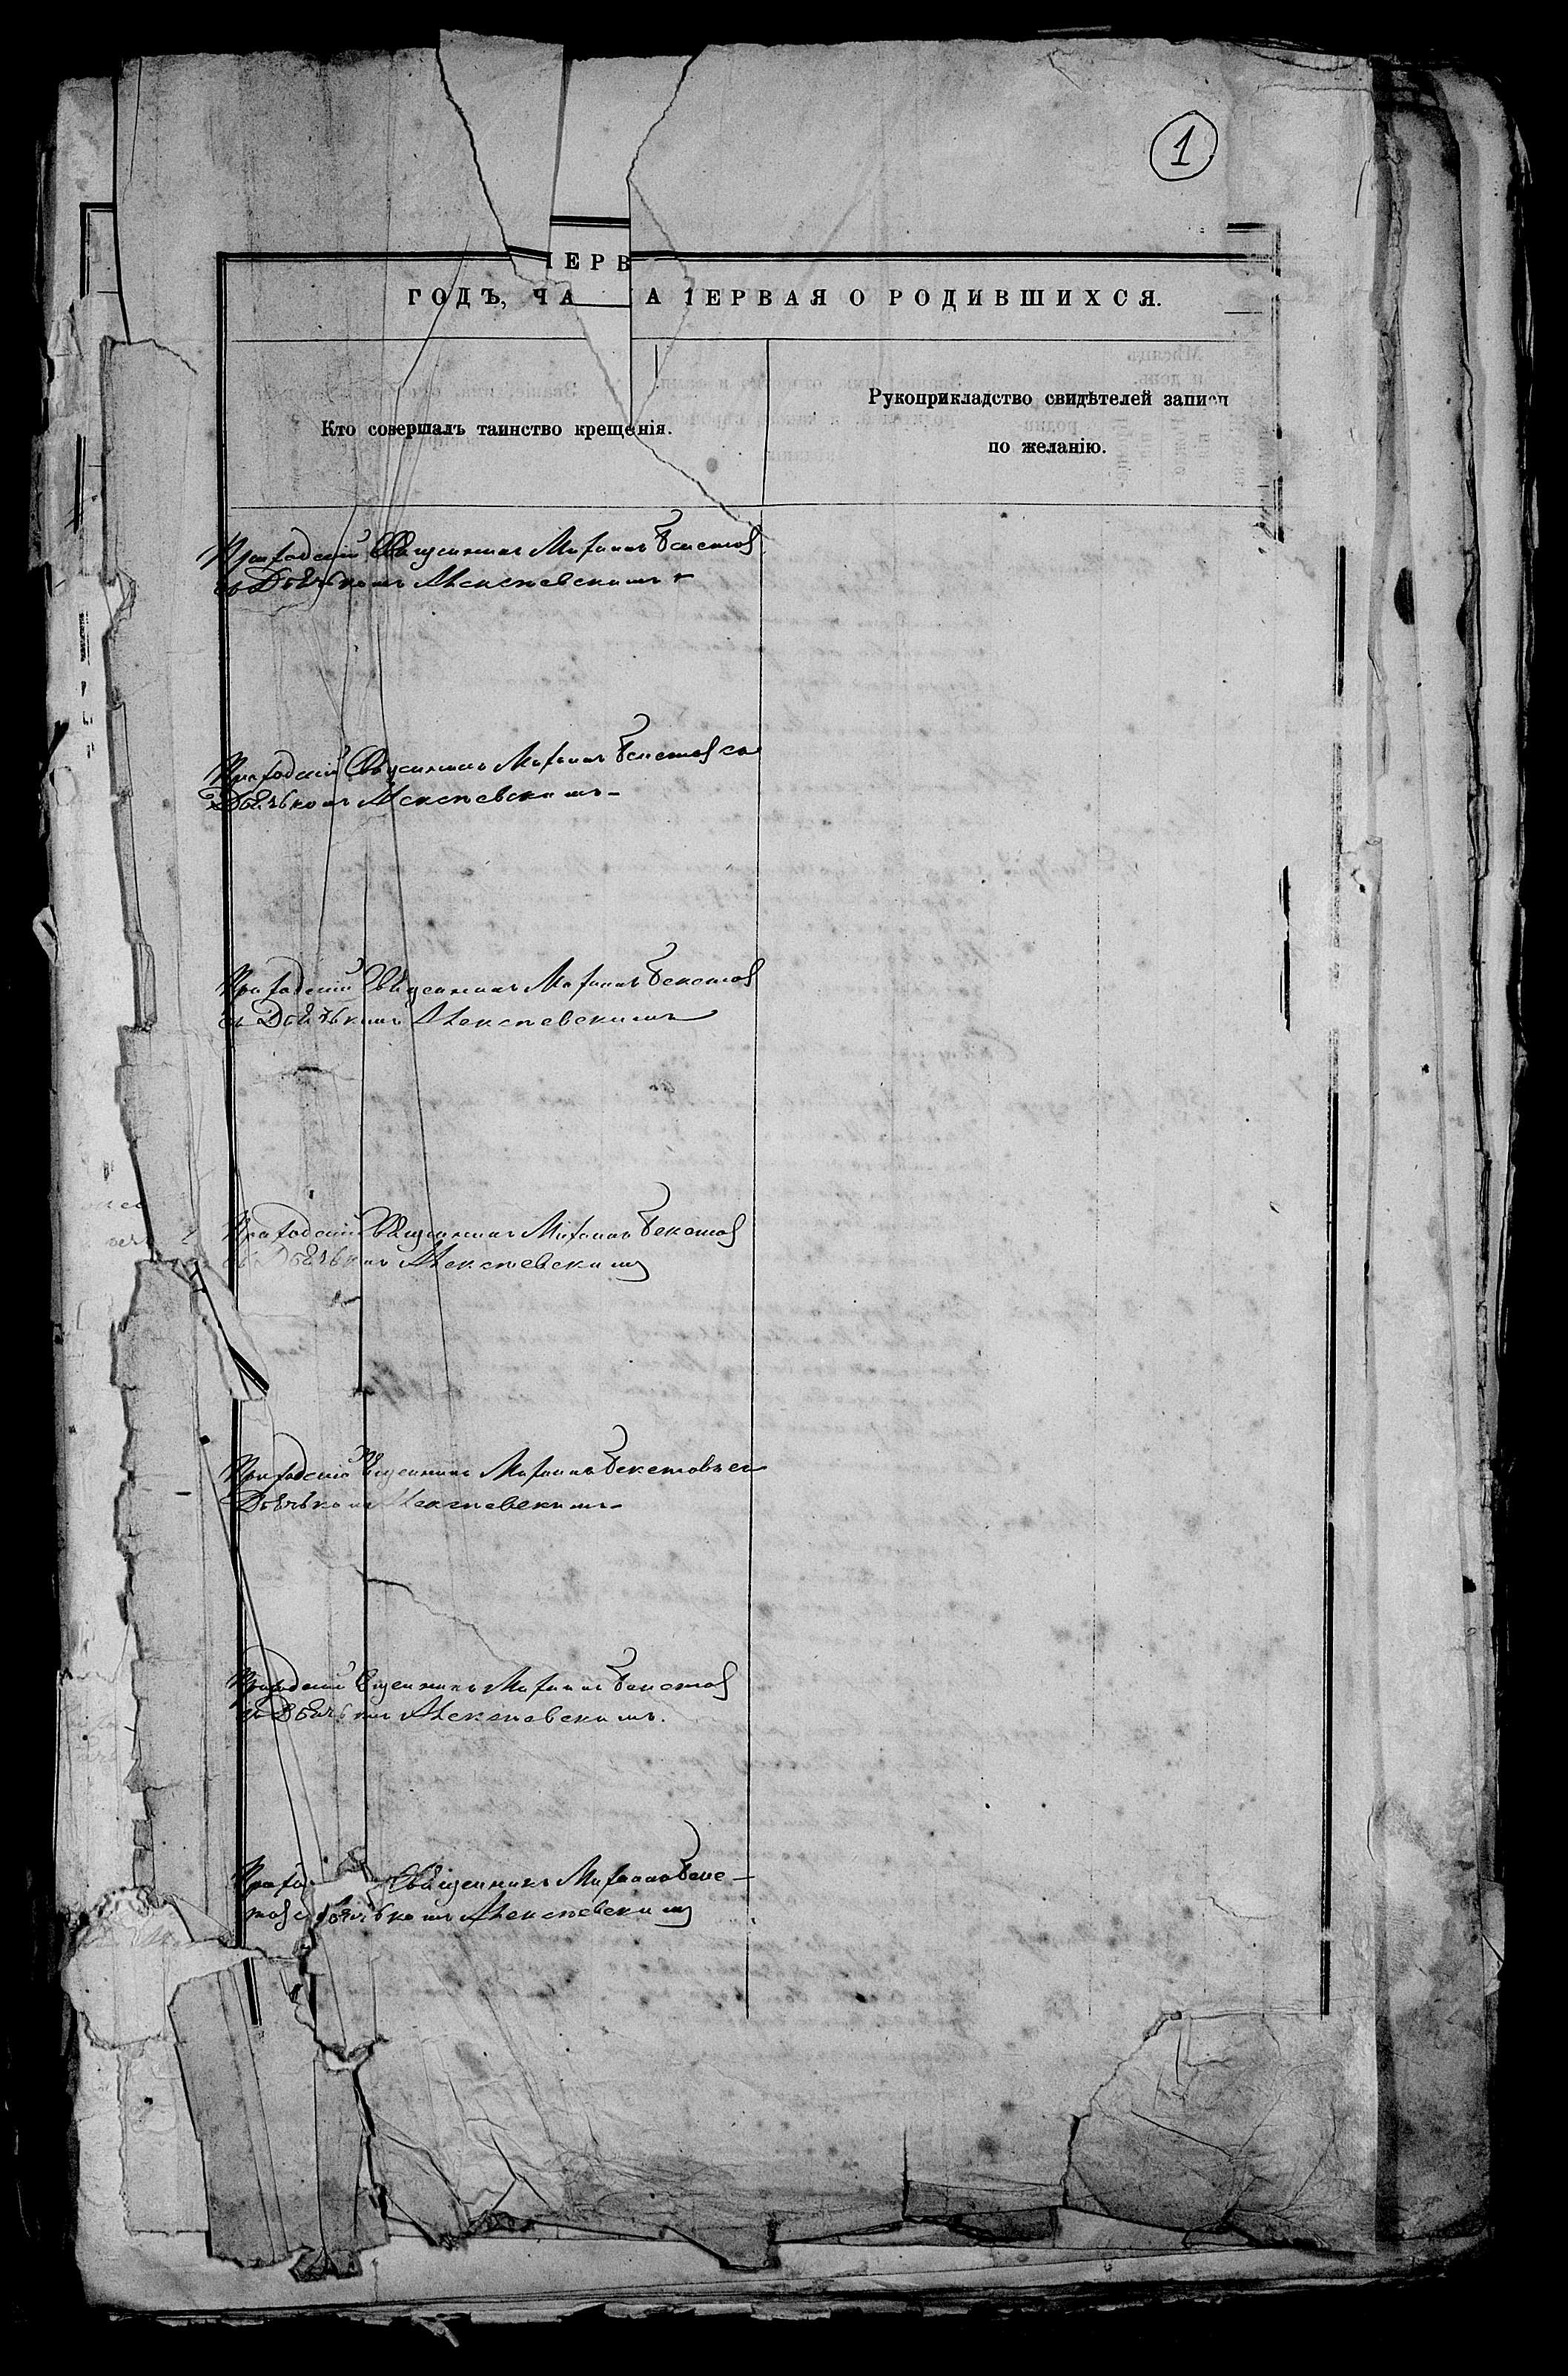 1
ПЕРВ
ГОДЪ, ЧА А ПЕРВАЯ О РОДИВШИХСЯ.
Кто совершалъ таинство крещенія.
Рукоприкладство свидѣтелей записи
по желанію.
Приходскій Священникъ Михаилъ Бекетовъ
съ Дьячкомъ Алексѣевскимъ
Приходскій Священникъ Михаилъ Бекетовъ съ
Дьячкомъ Алексѣевскимъ
Приходскій Священникъ Михаилъ Бекетовъ
съ Дьячкомъ Алексѣевскимъ
Приходскій Священникъ Михаилъ Бекетовъ
съ Дьячкомъ Алексѣевскимъ
Приходскій Священникъ Михаилъ Бекетовъ съ
Дьячкомъ Алексѣевскимъ
Приходскій Священникъ Михаилъ Бекетовъ
съ Дьячкомъ Алексѣевскимъ.
Прихо Священникъ Михаилъ Беке-
товъ с Дьячкомъ Алексѣевскимъ